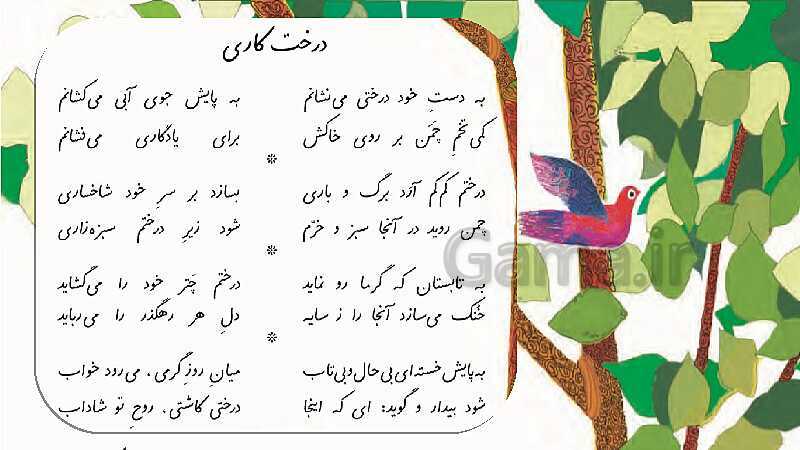 درخت کاری
به دستِ خود درختی می‌نشانم به پایش جوی آبی می‌کشانم
کمی تخمِ چمن بر روی خاکش برای یادگاری می‌نشانم
*
درختم کم‌کم آرَد برگ و باری بسازد بر سرِ خود شاخساری
چمن روید در آنجا سبز و خرّم شود زیرِ درختم سبزه‌زاری
*
به تابستان که گرما رو نماید درختم چَترِ خود را می‌گشاید
خُنَک می‌سازد آنجا را ز سایه دلِ هر رهگذر را می‌رباید
*
به پایش خسته‌ای بی‌حال و بی‌تاب میانِ روزِ گرمی، می‌رود خواب
شود بیدار و گوید: ای که اینجا درختی کاشتی، روحِ تو شاداب
Gama.ir